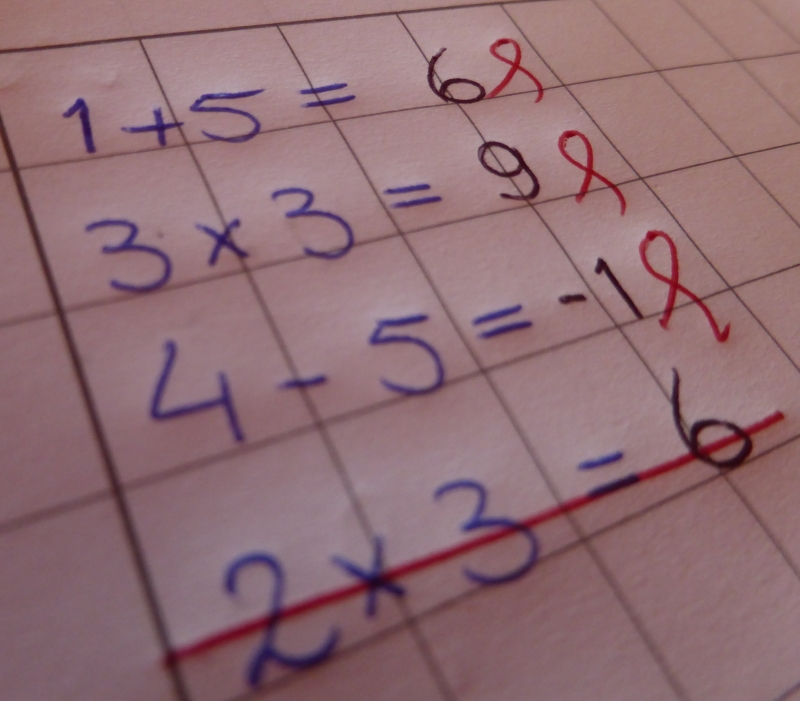 1 + 5 = 6
3 × 3 = 9
4 - 5 = -1
2 × 3 = 6